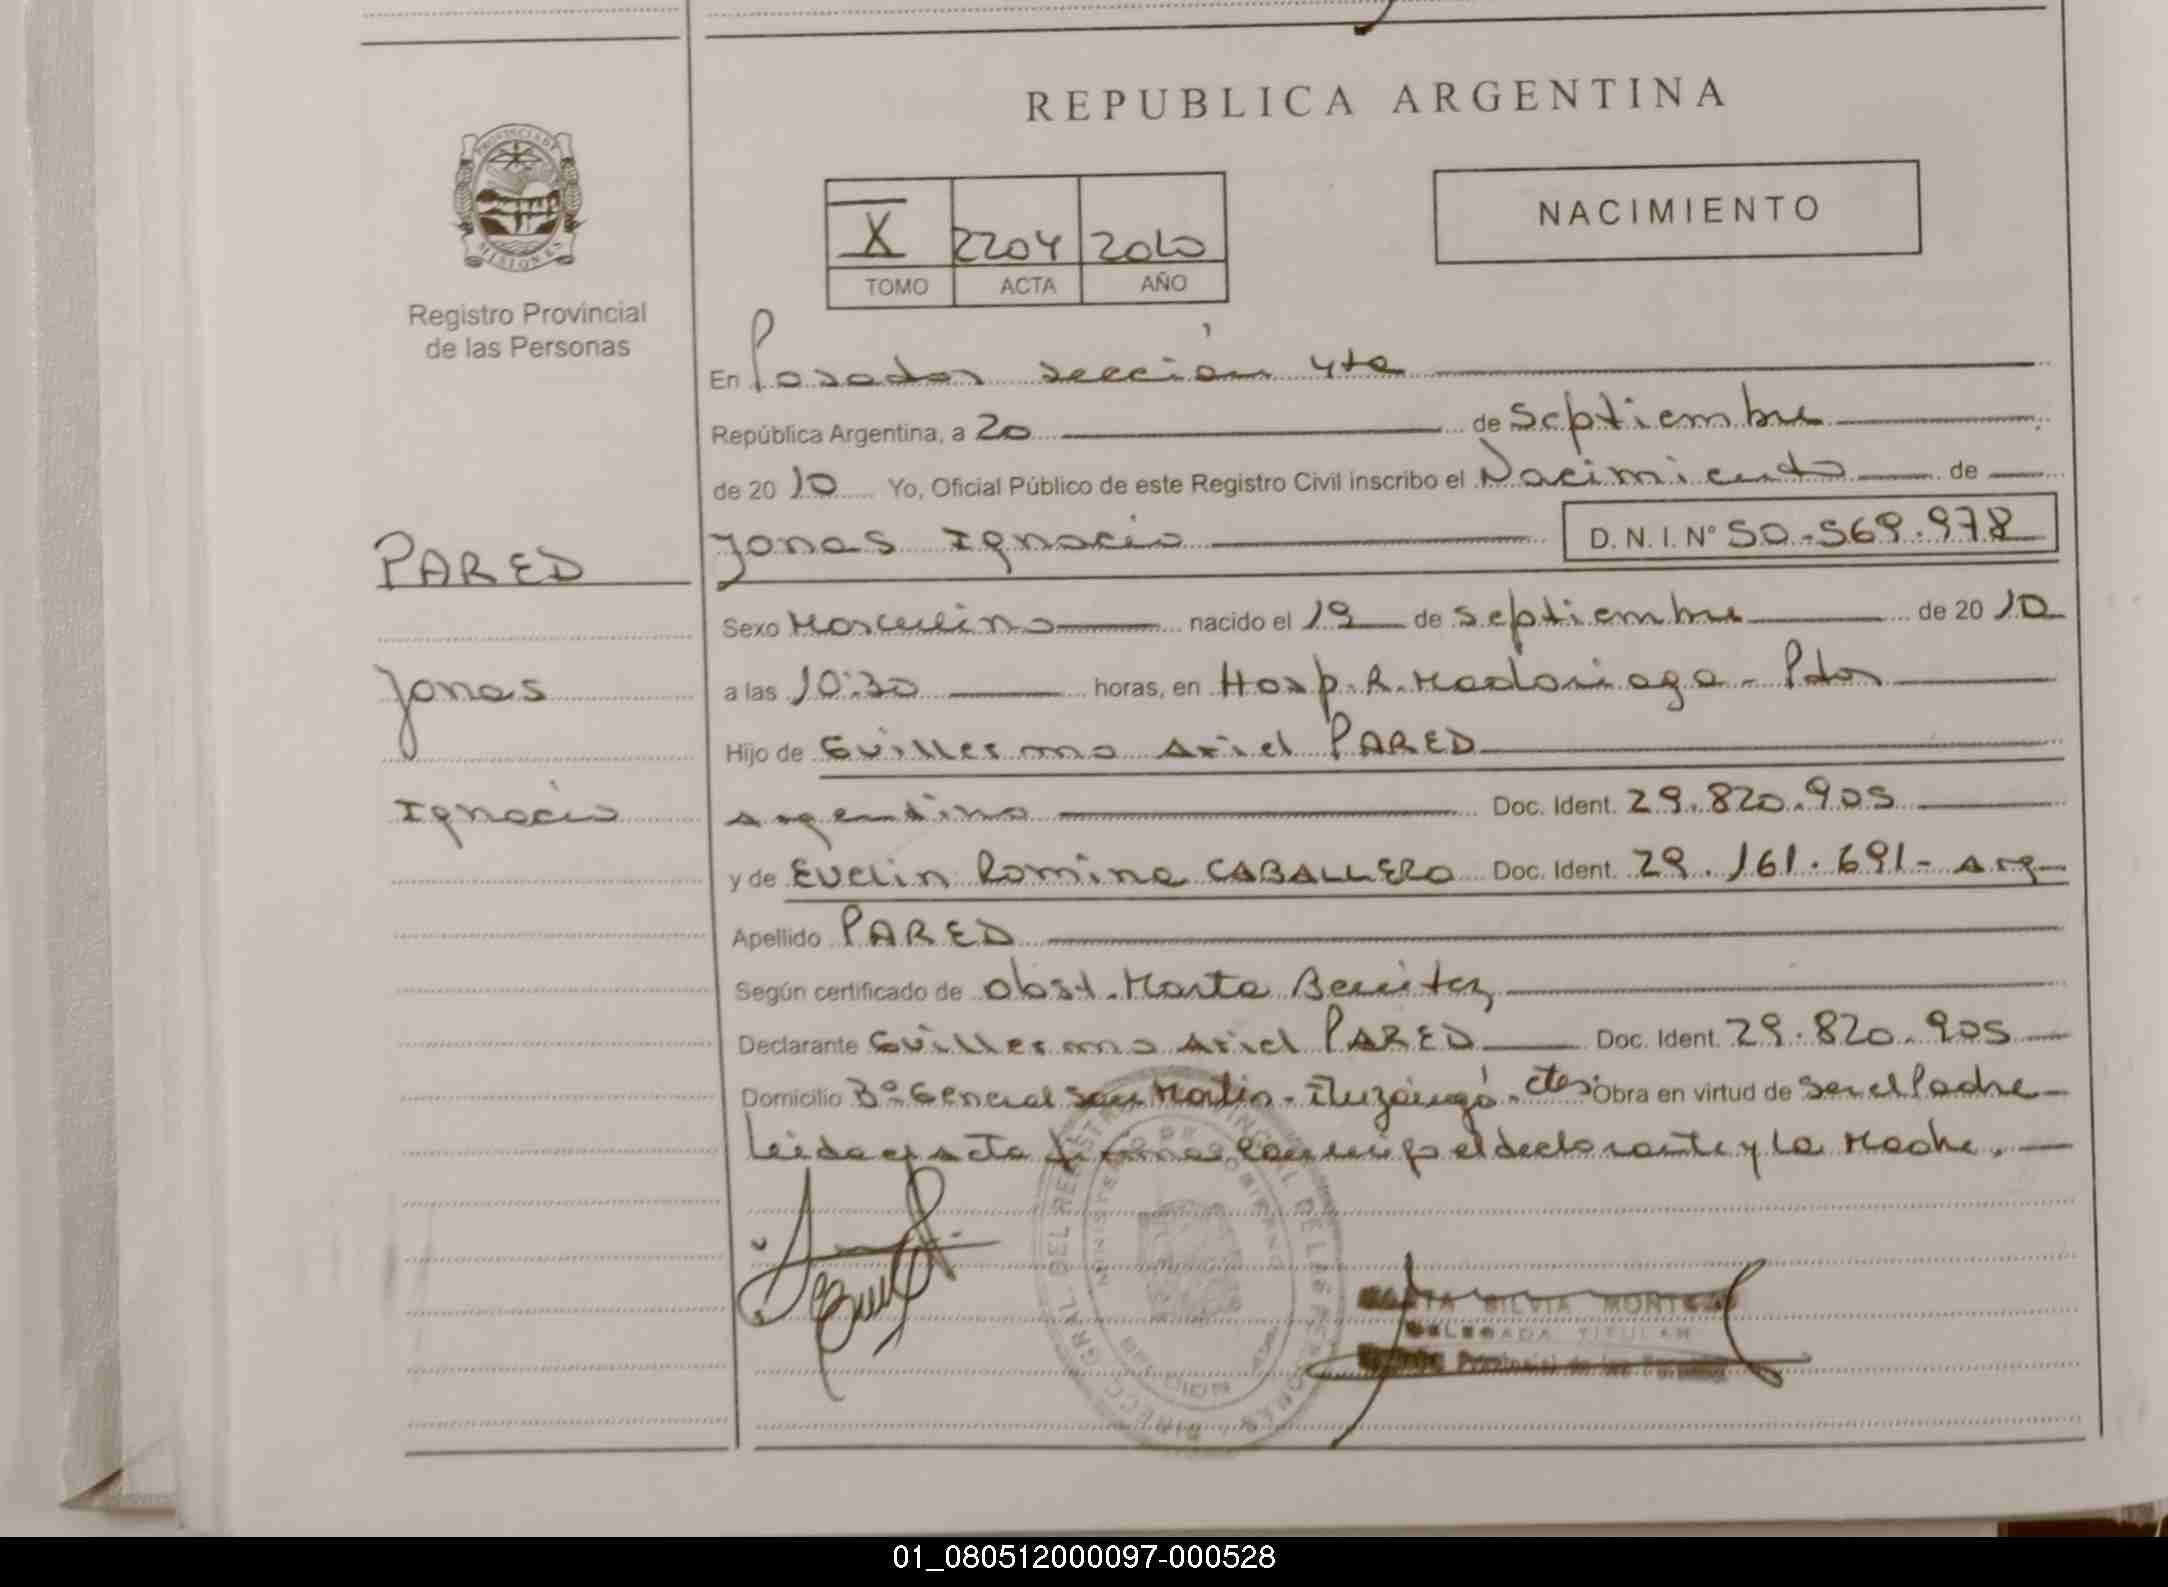 REPUBLICA ARGENTINA
PROVINCIA DE MISIONES
Registro Provincial
de las Personas
NACIMIENTO
X 2204 2010
TOMO ACTA AÑO
En Posadas sección 4ta
República Argentina, a 20 de Septiembre
de 20 10 Yo, Oficial Público de este Registro Civil inscribo el Nacimiento de
PARED
Jonas
Ignacio
Jonas Ignacio D.N.I.Nº 50.569.978
Sexo Masculino nacido el 19 de Septiembre de 20 10
a las 10:30 horas, en Hosp. R. Madariaga - Pdas
Hijo de Guillermo Ariel PARED
Argentino Doc. Ident. 29.820.905
y de Evelin Romina CABALLERO Doc. Ident. 29.161.691- Arg
Apellido PARED
Según certificado de Obst. Marta Benitez
Declarante Guillermo Ariel PARED Doc. Ident. 29.820.905
Domicilio Bº General San Martin - Ituzaingó. Ctes. Obra en virtud de ser el Padre
Leida el acta firman conmigo el declarante y la Madre.
SILVIA
DELEGADA TITULAR
Provincial de las Personas
01_080512000097-000528